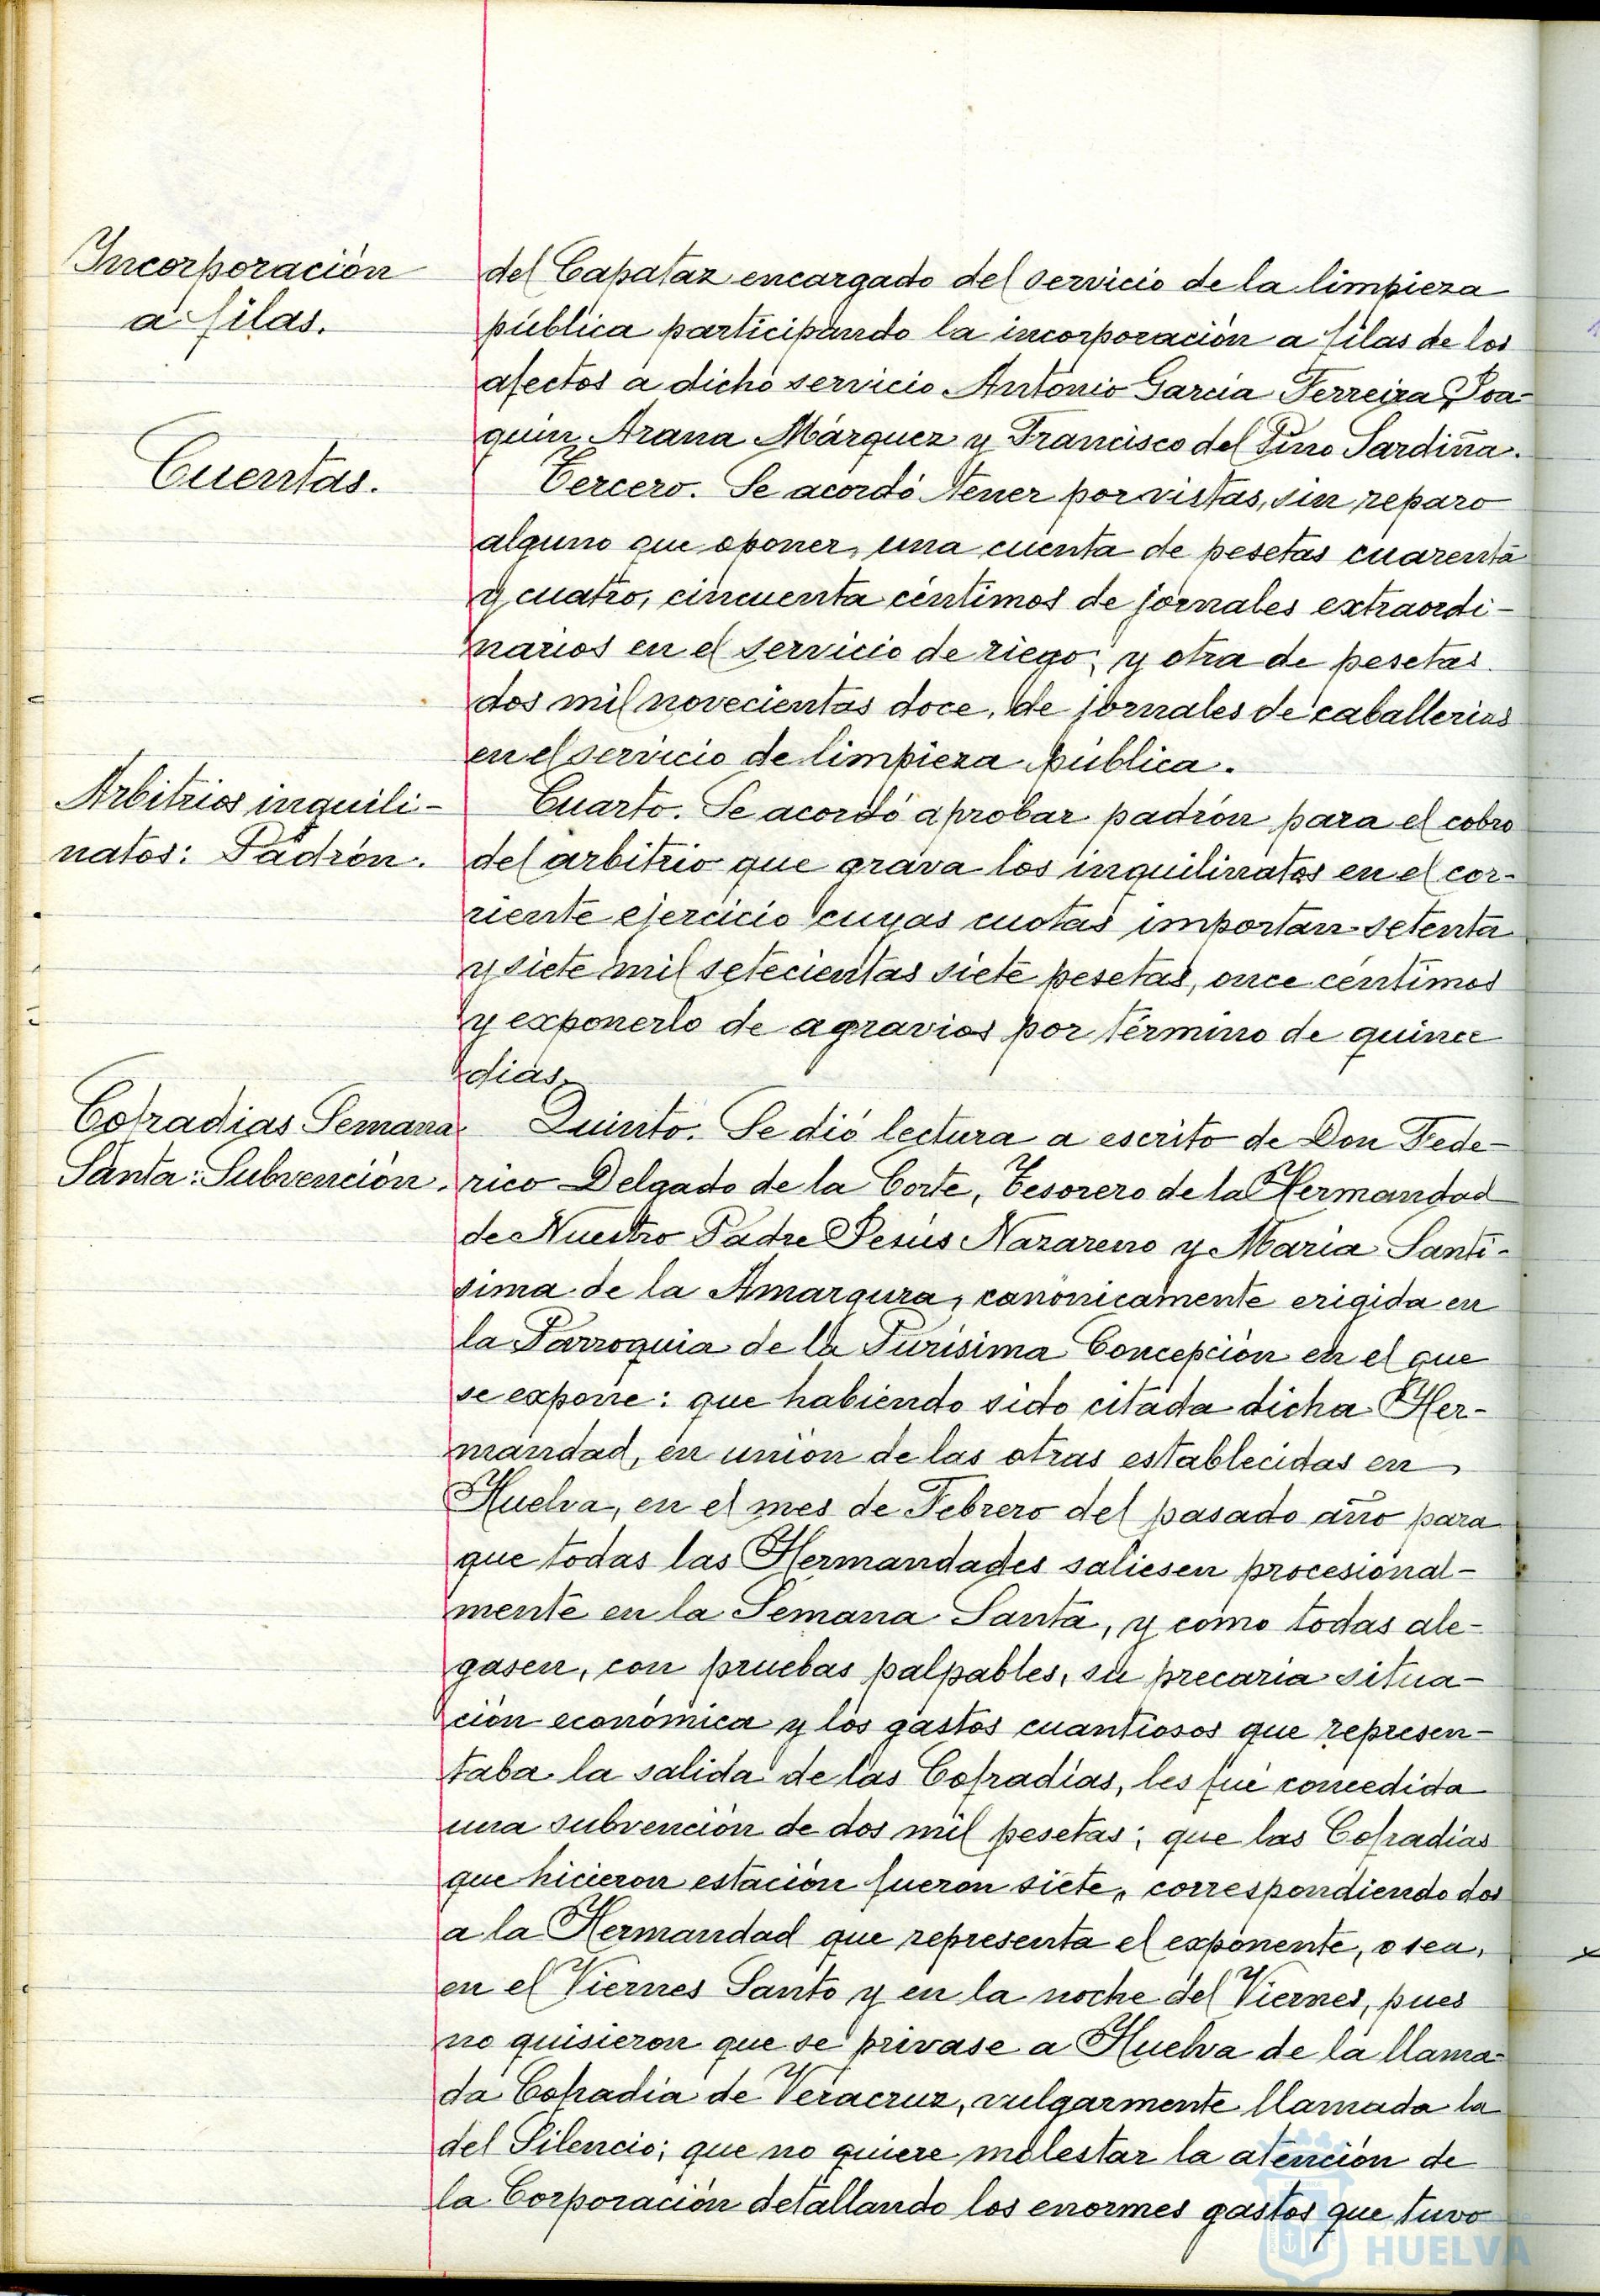 Incorporación
a filas.
del Capataz encargado del servicio de la limpieza
pública participando la incorporación a filas de los
afectos a dicho servicio Antonio García Ferreira, Joa-
quin Arana Márquez y Francisco del Pino Sardiña.
Cuentas.
Tercero. Se acordó tener por vistas, sin reparo
alguno que oponer, una cuenta de pesetas cuarenta
y cuatro, cincuenta céntimos de jornales extraordi-
narios en el servicio de riego; y otra de pesetas
dos mil novecientas doce, de jornales de caballerias
en el servicio de limpieza pública.
Arbitrios inquili-
natos: Padrón.
Cuarto. Se acordó aprobar padrón para el cobro
del arbitrio que grava los inquilinatos en el cor-
riente ejercicio cuyas cuotas importan setenta
y siete mil setecientas siete pesetas, once céntimos
y exponerlo de agravios por término de quince
dias.
Cofradias Semana
Santa: Subvención.
Quinto. Se dió lectura a escrito de Don Fede-
rico Delgado de la Corte, Tesorero de la Hermandad
de Nuestro Padre Jesús Nazareno y Maria Santi-
sima de la Amargura, canónicamente erigida en
la Parroquia de la Purísima Concepción en el que
se expone: que habiendo sido citada dicha Her-
mandad, en unión de las otras establecidas en
Huelva, en el mes de Febrero del pasado año para
que todas las Hermandades saliesen procesional-
mente en la Semana Santa, y como todas ale-
gasen, con pruebas palpables, su precaria situa-
ción económica y los gastos cuantiosos que represen-
taba la salida de las Cofradías, les fué concedida
una subvención de dos mil pesetas; que las Cofradías
que hicieron estación fueron siete, correspondiendo dos
a la Hermandad que representa el exponente, o sea,
en el Viernes Santo y en la noche del Viernes, pues
no quisieron que se privase a Huelva de la llama-
da Cofradía de Veracruz, vulgarmente llamada la
del Silencio; que no quiere molestar la atención de
la Corporación detallando los enormes gastos que tuvo
HUELVA